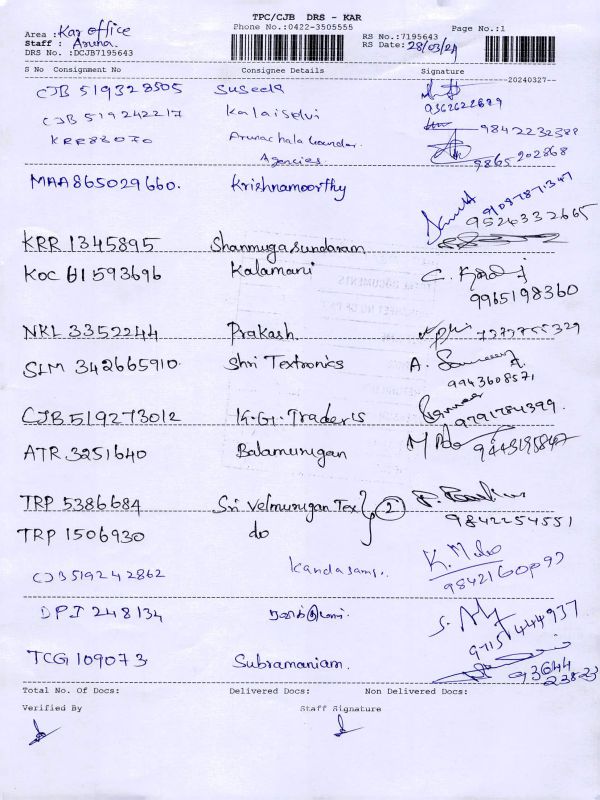 TPC/CJB DRS - KAR
Phone No.:0422-3505555
Page No.:1
Area : Kar office
Staff : Aruna.
DRS No. :DCJB7195643
RS No.:7195643
RS Date: 28/03/24
S No Consignment No Consignee Details Signature
--20240327--
CJB 519328505 Suseela
9362622889
CJB 519242217 Kalaiselvi
9842232388
KRR83070 Arunachala Gounder
Agencies. 9865202868
MAA865029660. Krishnamoorthy
9524332665
KRR 1345895 Shanmugasundaram
KOC 61593696 Kalamani
9965198360
NKL 3352244 Prakash.
SLM 342665910. Shri Textronics
9943608571
CJB519273012 K.G.Traders
9791784399.
ATR 3251640 Balamurugan
TRP 5386684 Sri Velmurugan Tex } 2
9842254551
TRP 1506930 do
CJB519242862 Kandasami..
DPI 248134
S.
97151444937
TCG 109073 Subramaniam.
93644
22823
Total No. Of Docs: Delivered Docs: Non Delivered Docs:
Verified By Staff Signature